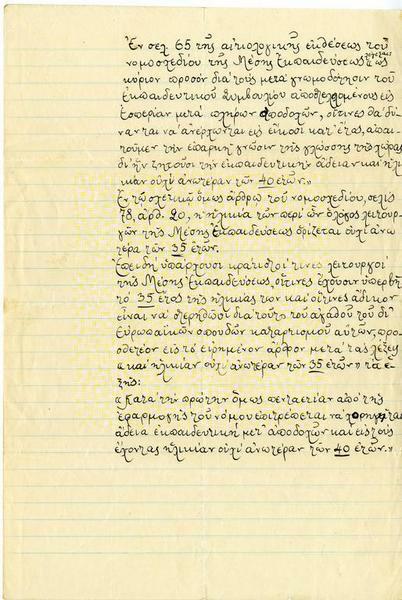 Ἐν σελ. 65 τῆς αἰτιολογικῆς ἐκθέσεως τοῦ
νομοσχεδίου τῆς Μέσης Ἐκπαιδεύσεως λέγεται: «ὡς
κύριον προσὸν διὰ τοὺς μετὰ γνωμοδότησιν τοῦ
Ἐκπαιδευτικοῦ Συμβουλίου ἀποστελλομένους εἰς
Ἑσπερίαν μετὰ πλήρων ἀποδοχῶν, οἵτινες θὰ δύ-
νανται νὰ ἀνέρχωνται εἰς εἴκοσι κατ' ἔτος, ἀπαι-
τοῦμεν τὴν ἐπαρκῆ γνῶσιν τῆς γλώσσης τῆς χώρας
δι' ἣν ζητοῦσι τὴν ἐκπαιδευτικὴν ἄδειαν καὶ ἡλι-
κίαν οὐχὶ ἀνωτέραν τῶν 40 ἐτῶν.»
Ἐν τῷ σχετικῷ ὅμως ἄρθρῳ τοῦ νομοσχεδίου, σελὶς
78, ἀρθ. 20, ἡ ἡλικία τῶν περὶ ὧν ὁ λόγος λειτουρ-
γῶν τῆς Μέσης Ἐκπαιδεύσεως ὁρίζεται οὐχὶ ἀνω-
τέρα τῶν 35 ἐτῶν.
Ἐπειδὴ ὑπάρχουσι κράτιστοί τινες λειτουργοὶ
τῆς Μέσης Ἐκπαιδεύσεως, οἵτινες ἔχουσιν ὑπερβῆ
τὸ 35 ἔτος τῆς ἡλικίας των καὶ οἵτινες ἄδικον
εἶναι νὰ στερηθῶσι διὰ τοῦτο τοῦ ἀγαθοῦ τοῦ δι'
Εὐρωπαϊκῶν σπουδῶν καταρτισμοῦ αὐτῶν, προσ-
θετέον εἰς τὸ εἰρημένον ἄρθρον μετὰ τὰς λέξεις
«καὶ ἡλικίαν οὐχὶ ἀνωτέραν τῶν 35 ἐτῶν» τὰ ἑ-
ξῆς:
«Κατὰ τὴν πρώτην ὅμως πενταετίαν ἀπὸ τῆς
ἐφαρμογῆς τοῦ νόμου ἐπιτρέπεται νὰ χορηγῆται
ἄδεια ἐκπαιδευτικὴ μετ' ἀποδοχῶν καὶ εἰς τοὺς
ἔχοντας ἡλικίαν οὐχὶ ἀνωτέραν τῶν 40 ἐτῶν.»